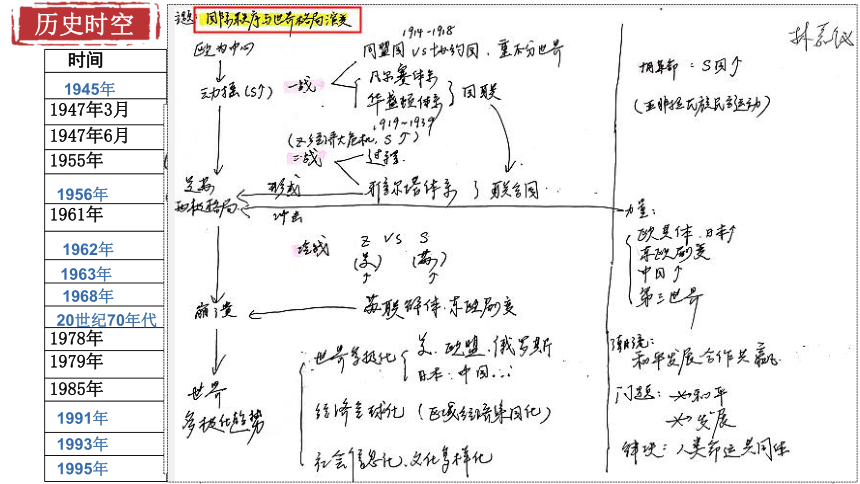 历史时空
时间
1945年
1947年3月
1947年6月
1955年
1956年
1961年
1962年
1963年
1968年
20世纪70年代
1978年
1979年
1985年
1991年
1993年
1995年
主题: 国际秩序与世界格局演变
欧为中心
1914-1918
同盟国 VS 协约国. 重新分世界
动摇(S↑) 一战
凡尔赛体系
华盛顿体系 } 国联
1919~1939
(Z 经济大危机, S↑)
二战 过程.
形成 雅尔塔体系 } 联合国.
两极格局
冲击
冷战 Z VS S
(美) (苏)
↑ ↑
崩溃 苏联解体.东欧剧变
世界多极化 { 美. 欧盟. 俄罗斯
日本. 中国...
世界
多极化趋势
经济全球化 (区域经济集团化)
社会信息化.文化多样化
S国↑
(亚非拉民族民主运动)
力量:
欧共体.日本↑
东欧剧变
中国↑
第三世界
潮流:
和平发展合作共赢
问题: 和平
发展
解决: 人类命运共同体